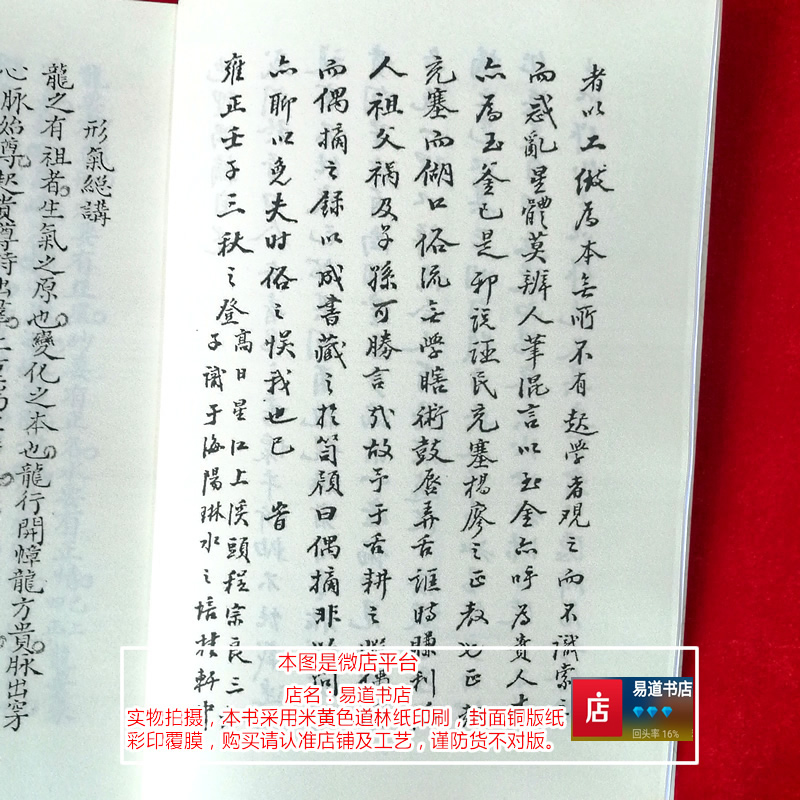 者以工倣為本無所不有趂學者观之而不識索
而惑亂星體莫辨人筆混言以玉金亦呼為貴人
亦為玉釜已是邪説誣民充塞楊廖之正教
充塞而餬口俗流無學瞎術鼓唇弄舌誰時賺利
人祖父禍及子孫可勝言哉故予于舌耕之
而偶摘之録以成書藏之於笥顔曰偶摘非
亦聊以免夫时俗之悮我也已 旹
雍正壬子三秋之登高日星江上溪頭程宗良三
子識于海陽琳水之培桂軒中
形氣總講
龍之有祖者生氣之原也變化之本也龍行開幛龍方貴脉出穿
心脉始尊
本图是微店平台
店名：易道书店
实物拍摄，本书采用米黄色道林纸印刷，封面铜版纸
彩印覆膜，购买请认准店铺及工艺，谨防货不对版。
店
易道书店
回头率 16%